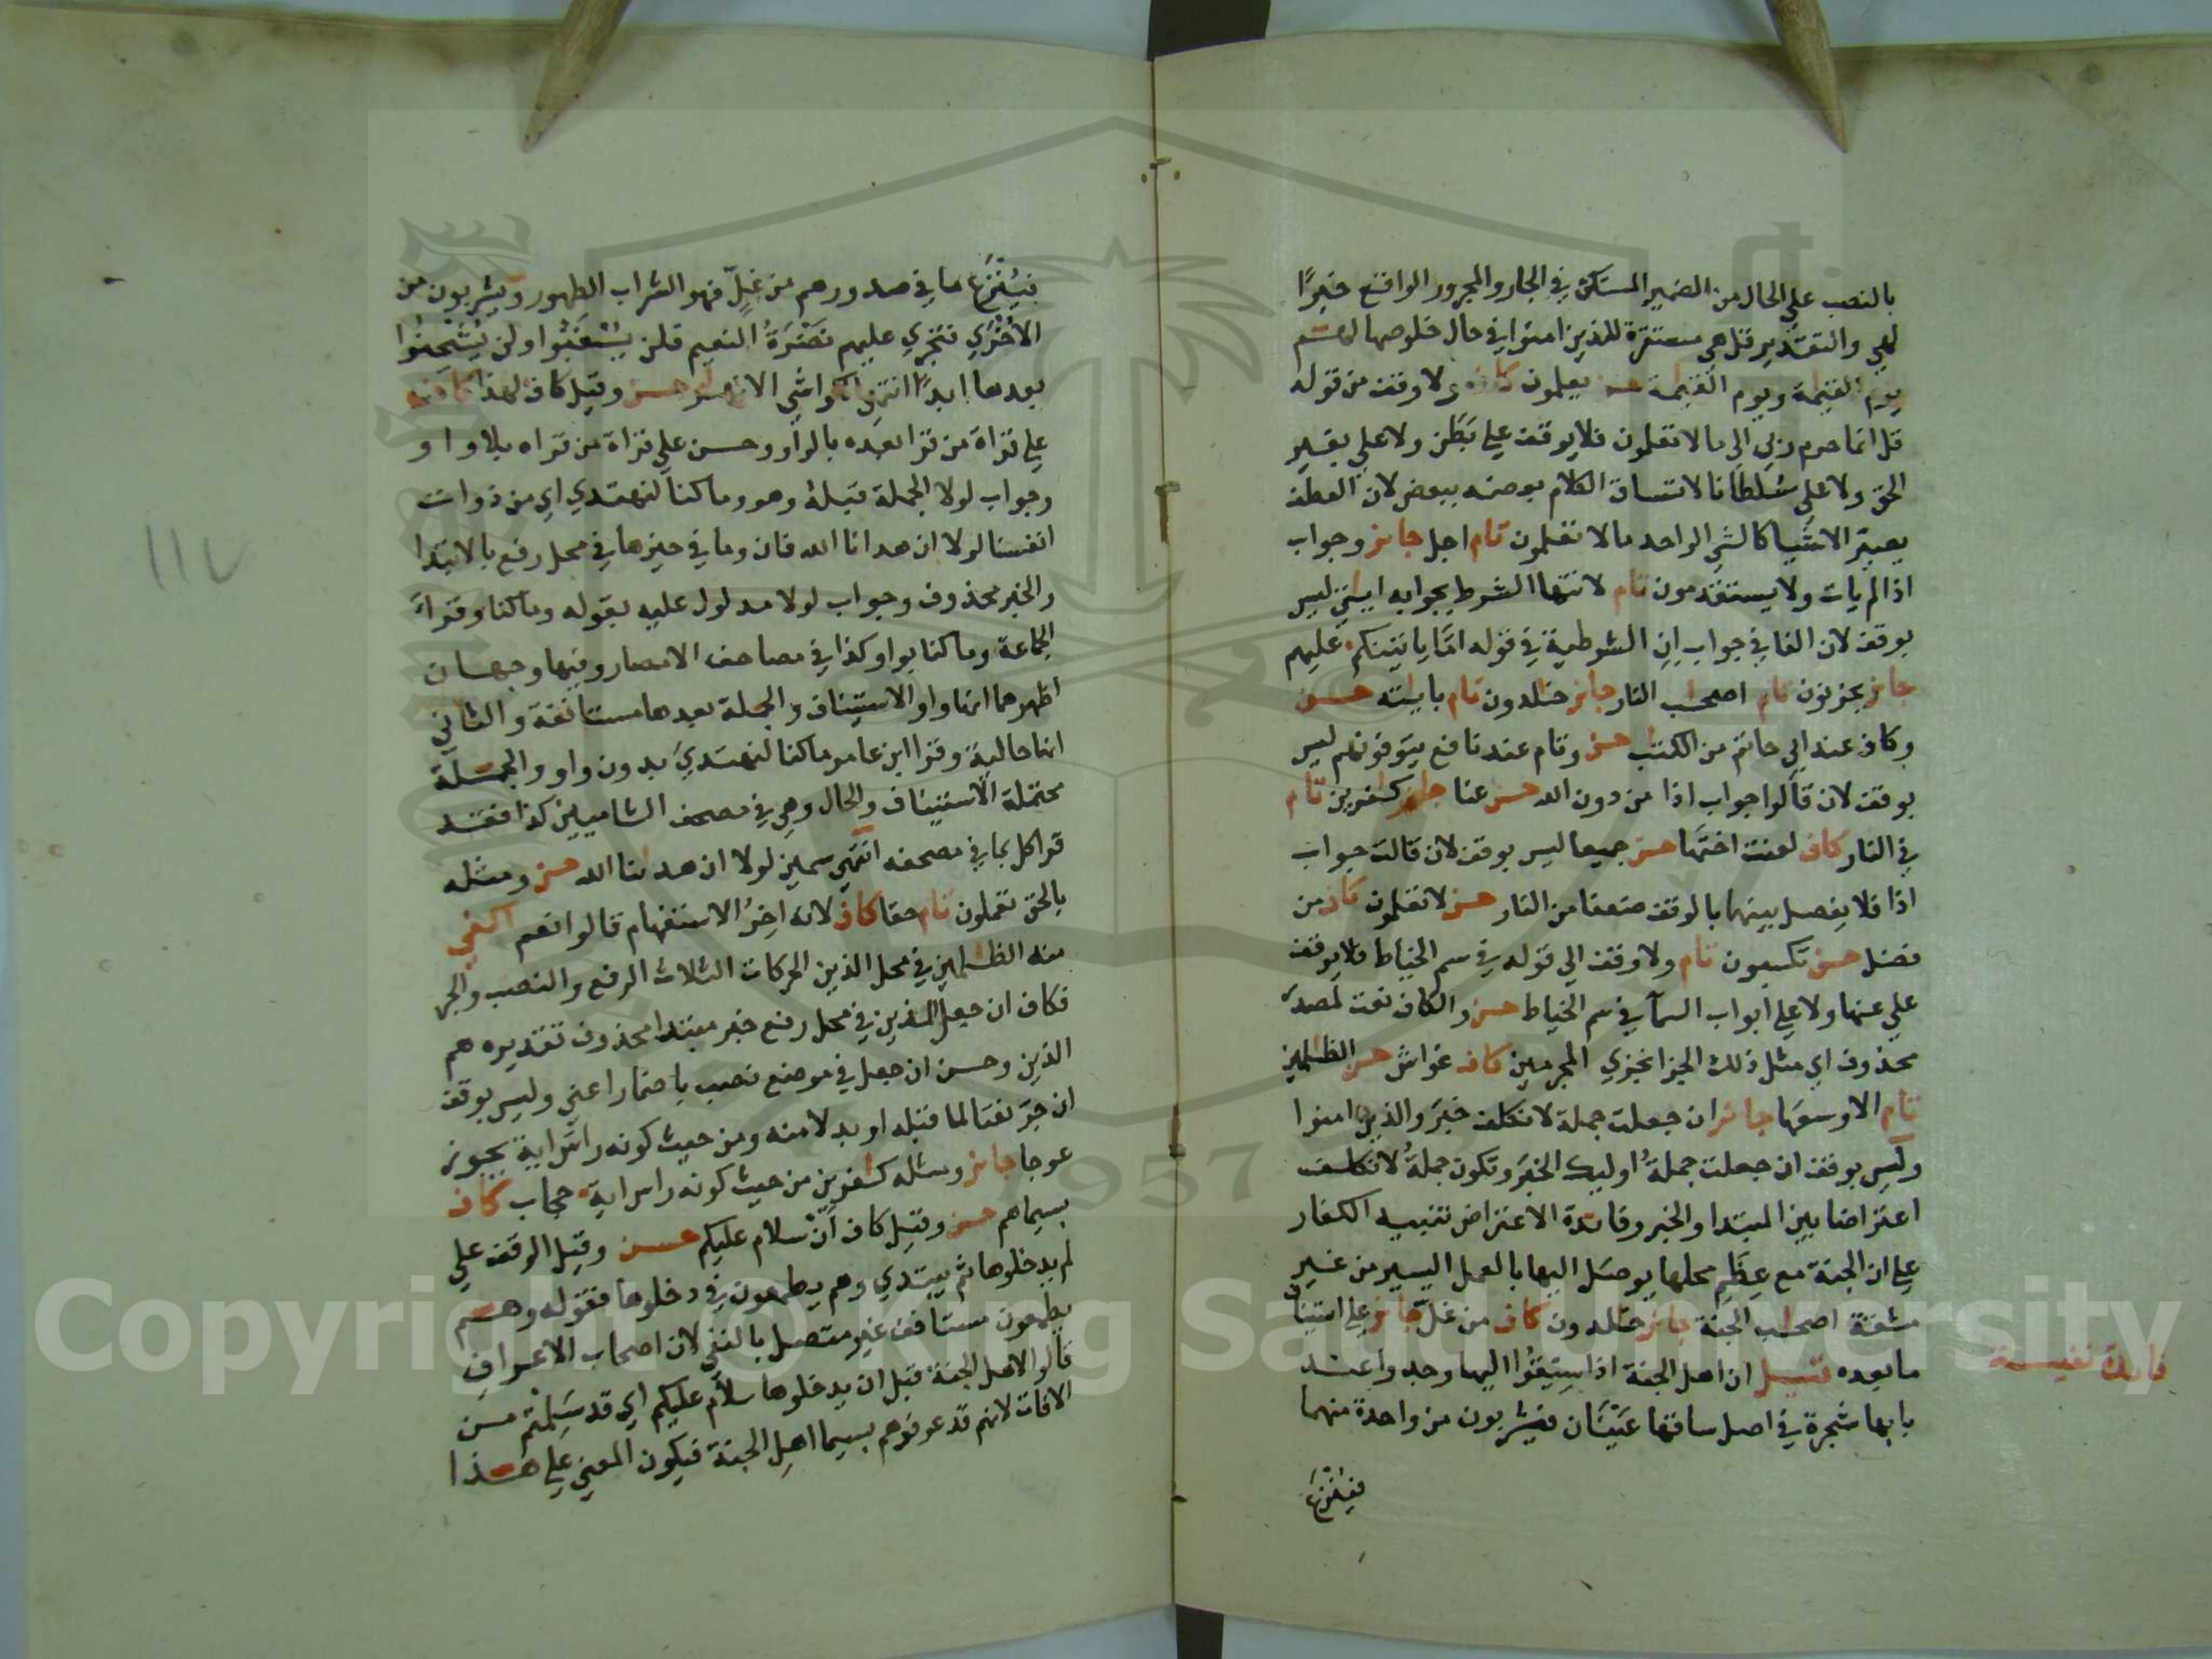 بالنصب على الحال من الضمير المستكن في الجار والمجرور الواقع خبرًا
لهي والتقدير قل هي مستقرة للذين امنوا في حال خلوصها لهم
يوم القيمة ويوم القيمة حسن يعلمون كاف ولا وقف من قوله
قل انما حرم ربي الى ما لا تعلمون فلا يوقف على بطن ولا على بغير
الحق ولا على سلطانا لاتساق الكلام بعضه ببعض لان العطف
يصير الاشيا كالشي الواحد مالا تعلمون تام اجل جايز وجواب
اذا لم يات ولا يستقدمون تام لانتها الشرط بجوابه ايتي ليس
بوقف لان الفا في جواب ان الشرطية في قوله امّا ياتينكم عليهم
جايز يحزنون تام اصحب النار جايز خلدون تام باياته حسن
وكاف عند ابي حاتم من الكتب حسن وتام عند نافع يتوفونهم ليس
بوقف لان قالوا جواب اذا من دون الله حسن عنا جايز كفرين تام
في النار كاف لعنت اختها حسن جميعا ليس بوقف لان قالت جواب
اذا فلا يفصل بينهما بالوقف ضعفا من النار حسن لا تعلمون كاف من
فضل حسن تكسبون تام ولا وقف الى قوله في سم الخياط فلا يوقف
على عنها ولا على ابواب السمآ في سم الخياط حسن والكاف نعت لمصدر
محذوف اي مثل ذلك الجزا نجزي المجرمين كاف غواش حسن الظلمين
تام الا وسعها جائز ان جعلت جملة لا نكلف خبر والذين امنوا
وليس بوقف ان جعلت جملة اوليك الخبر وتكون جملة لا نكلف
اعتراضا بين المبتدا والخبر وفائدة الاعتراض تنبيه الكفار
على ان الجنة مع عِظَم محلها يوصل اليها بالعمل اليسير من غير
مشقة اصحب الجنة جايز خلدون كاف من غل جايز على استيناف
ما بعده قيل ان اهل الجنة اذا سيقوا اليها وجدوا عند
بابها شجرة في اصل ساقها عينان فيشربون من واحدة منهما
فينزع
فايدة نفيسة
فينزع ما في صدورهم من غلٍّ فهو الشراب الطهور ويشربون من
الاخري فتجري عليهم نضرة النعيم فلن يشعثوا ولن يشحنوا
بعدها ابدًا انتهى كواشي الانهر حسن وقيل كاف لهذا كاف
على قراة من قرا بعده بالواو وحسن على قراة من قراه بلا واو
وجواب لولا الجملة قبله وهو وما كنا لنهتدي اي من ذوات
انفسنا لولا ان هدانا الله فان وما في حيزها في محل رفع بالابتدا
والخبر محذوف وجواب لولا مدلول عليه بقوله وما كنا وقرا
الجماعة وما كنا بواو وكذا في مصاحف الامصار وفيها وجهان
اظهرهما انها واو الاستيناف والجملة بعدها مستانفة والثاني
انها حالية وقرا ابن عامر ما كنا لنهتدي بدون واو والجملة
محتملة الاستيناف والحال وهي في مصحف الشاميين كذا فقد
قرا كل بما في مصحفه انتهى سمين لولا ان هدنا الله حسن ومثله
بالحق تعملون تام حقا كاف لانه اخر الاستفهام قالوا نعم اكفي
منه الظلمين في محل الذين الحركات الثلاث الرفع والنصب والجر
فكاف ان جعل الذين في محل رفع خبر مبتدا محذوف تقديره هم
الذين وحسن ان جعل في موضع نصب باضمار اعني وليس بوقف
ان جر نعتا لما قبله او بدلا منه ومن حيث كونه راس اية يجوز
عوجا جايز ومثله كفرين من حيث كونه راس اية حجاب كاف
بسيماهم حسن وقيل كاف ان سلام عليكم حسن وقيل الوقف على
لم يدخلوها ثم يبتدي وهم يطمعون في دخلوها فقوله وهم
يطمعون مستانف غير متصل بالنفي لان اصحاب الاعراف
قالوا لاهل الجنة قبل ان يدخلوها سلام عليكم اي قد سلمتم من
الافات لانهم قد عرفوهم بسيما اهل الجنة فيكون المعني على هذا
١١٧
Copyright © King Saud University
1957